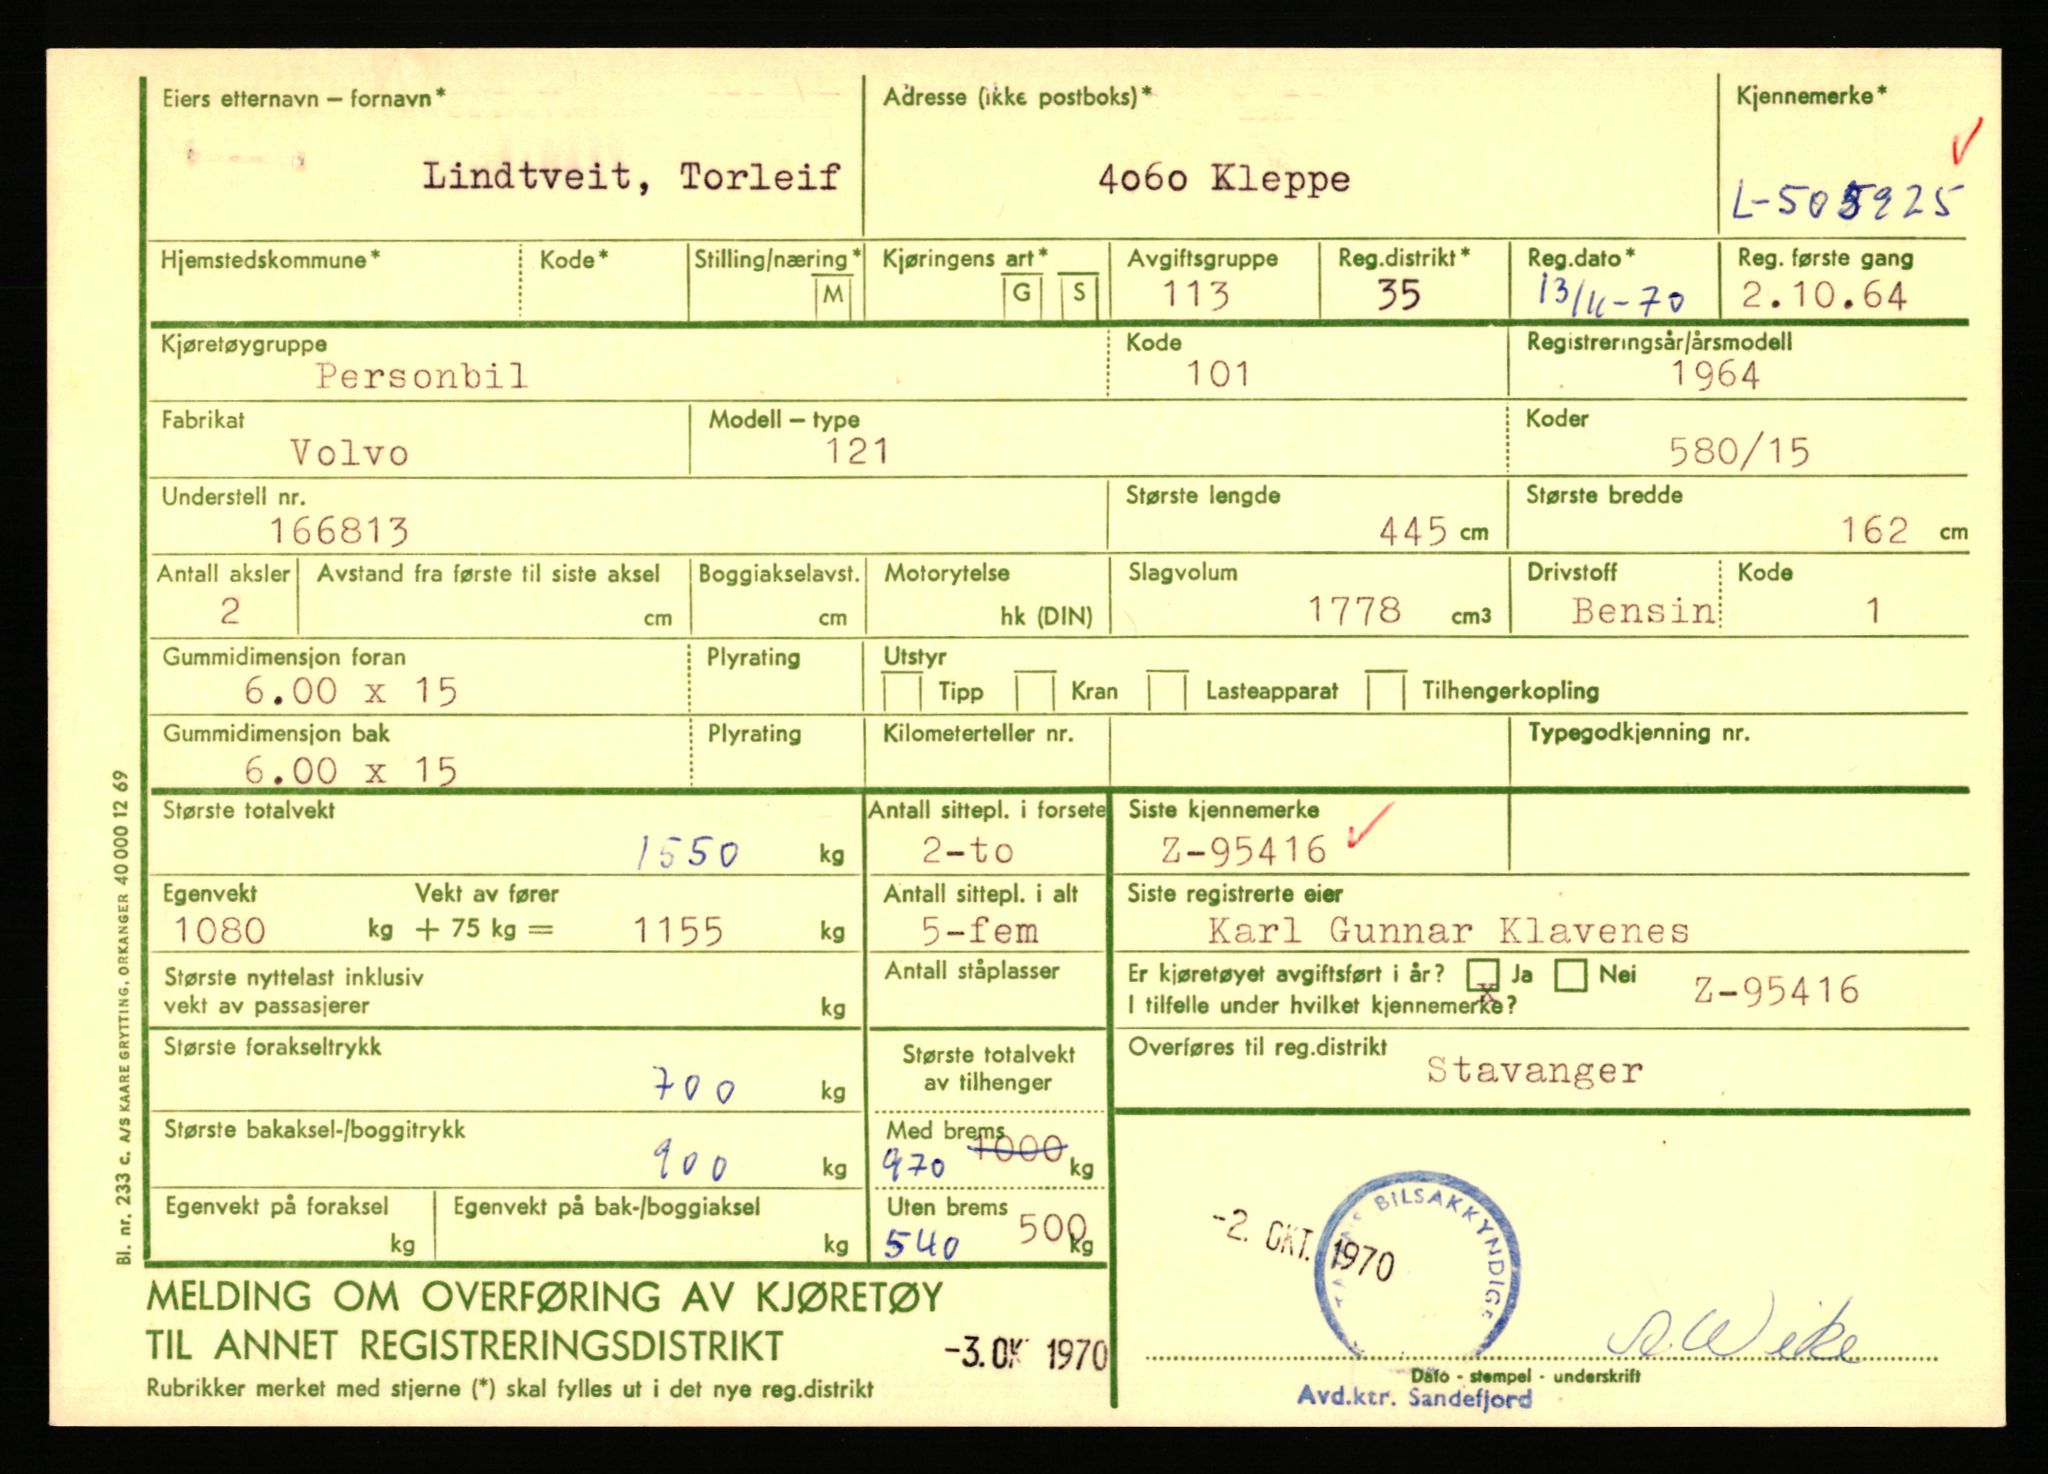 Eiers etternavn – fornavn*
Lindtveit, Torleif
Adresse (ikke postboks)*
4060 Kleppe
Kjennemerke*
Hjemstedskommune*
Kode*
Stilling/næring*
M
Kjøringens art*
G S
Avgiftsgruppe
113
Reg.distrikt*
35
Reg.dato*
13/11-70
Reg. første gang
2.10.64
Kjøretøygruppe
Personbil
Kode
101
Registreringsår/årsmodell
1964
Fabrikat
Volvo
Modell – type
121
Koder
580/15
Understell nr.
166813
Største lengde
445 cm
Største bredde
162 cm
Antall aksler
2
Avstand fra første til siste aksel
cm
Boggiakselavst.
cm
Motorytelse
hk (DIN)
Slagvolum
1778 cm3
Drivstoff
Bensin
Kode
1
Gummidimensjon foran
6.00 x 15
Plyrating
Utstyr
Tipp Kran Lasteapparat Tilhengerkopling
Gummidimensjon bak
6.00 x 15
Plyrating
Kilometerteller nr.
Typegodkjenning nr.
Største totalvekt
1550 kg
Antall sittepl. i forsete
2-to
Siste kjennemerke
Z-95416
Egenvekt Vekt av fører
1080 kg + 75 kg = 1155 kg
Antall sittepl. i alt
5-fem
Siste registrerte eier
Karl Gunnar Klavenes
Største nyttelast inklusiv
vekt av passasjerer kg
Antall ståplasser
Er kjøretøyet avgiftsført i år? x Ja Nei
I tilfelle under hvilket kjennemerke?
Z-95416
Største forakseltrykk
700 kg
Største totalvekt
av tilhenger
Overføres til reg.distrikt
Stavanger
Største bakaksel-/boggitrykk
900 kg
Med brems
970 1000 kg
Egenvekt på foraksel
kg
Egenvekt på bak-/boggiaksel
kg
Uten brems
540 500 kg
MELDING OM OVERFØRING AV KJØRETØY
TIL ANNET REGISTRERINGSDISTRIKT
-3. OK 1970
Rubrikker merket med stjerne (*) skal fylles ut i det nye reg.distrikt
-2. OKT. 1970
BILSAKKYNDIGE
Dato - stempel - underskrift
Avd.ktr. Sandefjord
Bl. nr. 233 c. A/S KAARE GRYTTING, ORKANGER 40 000 12 69